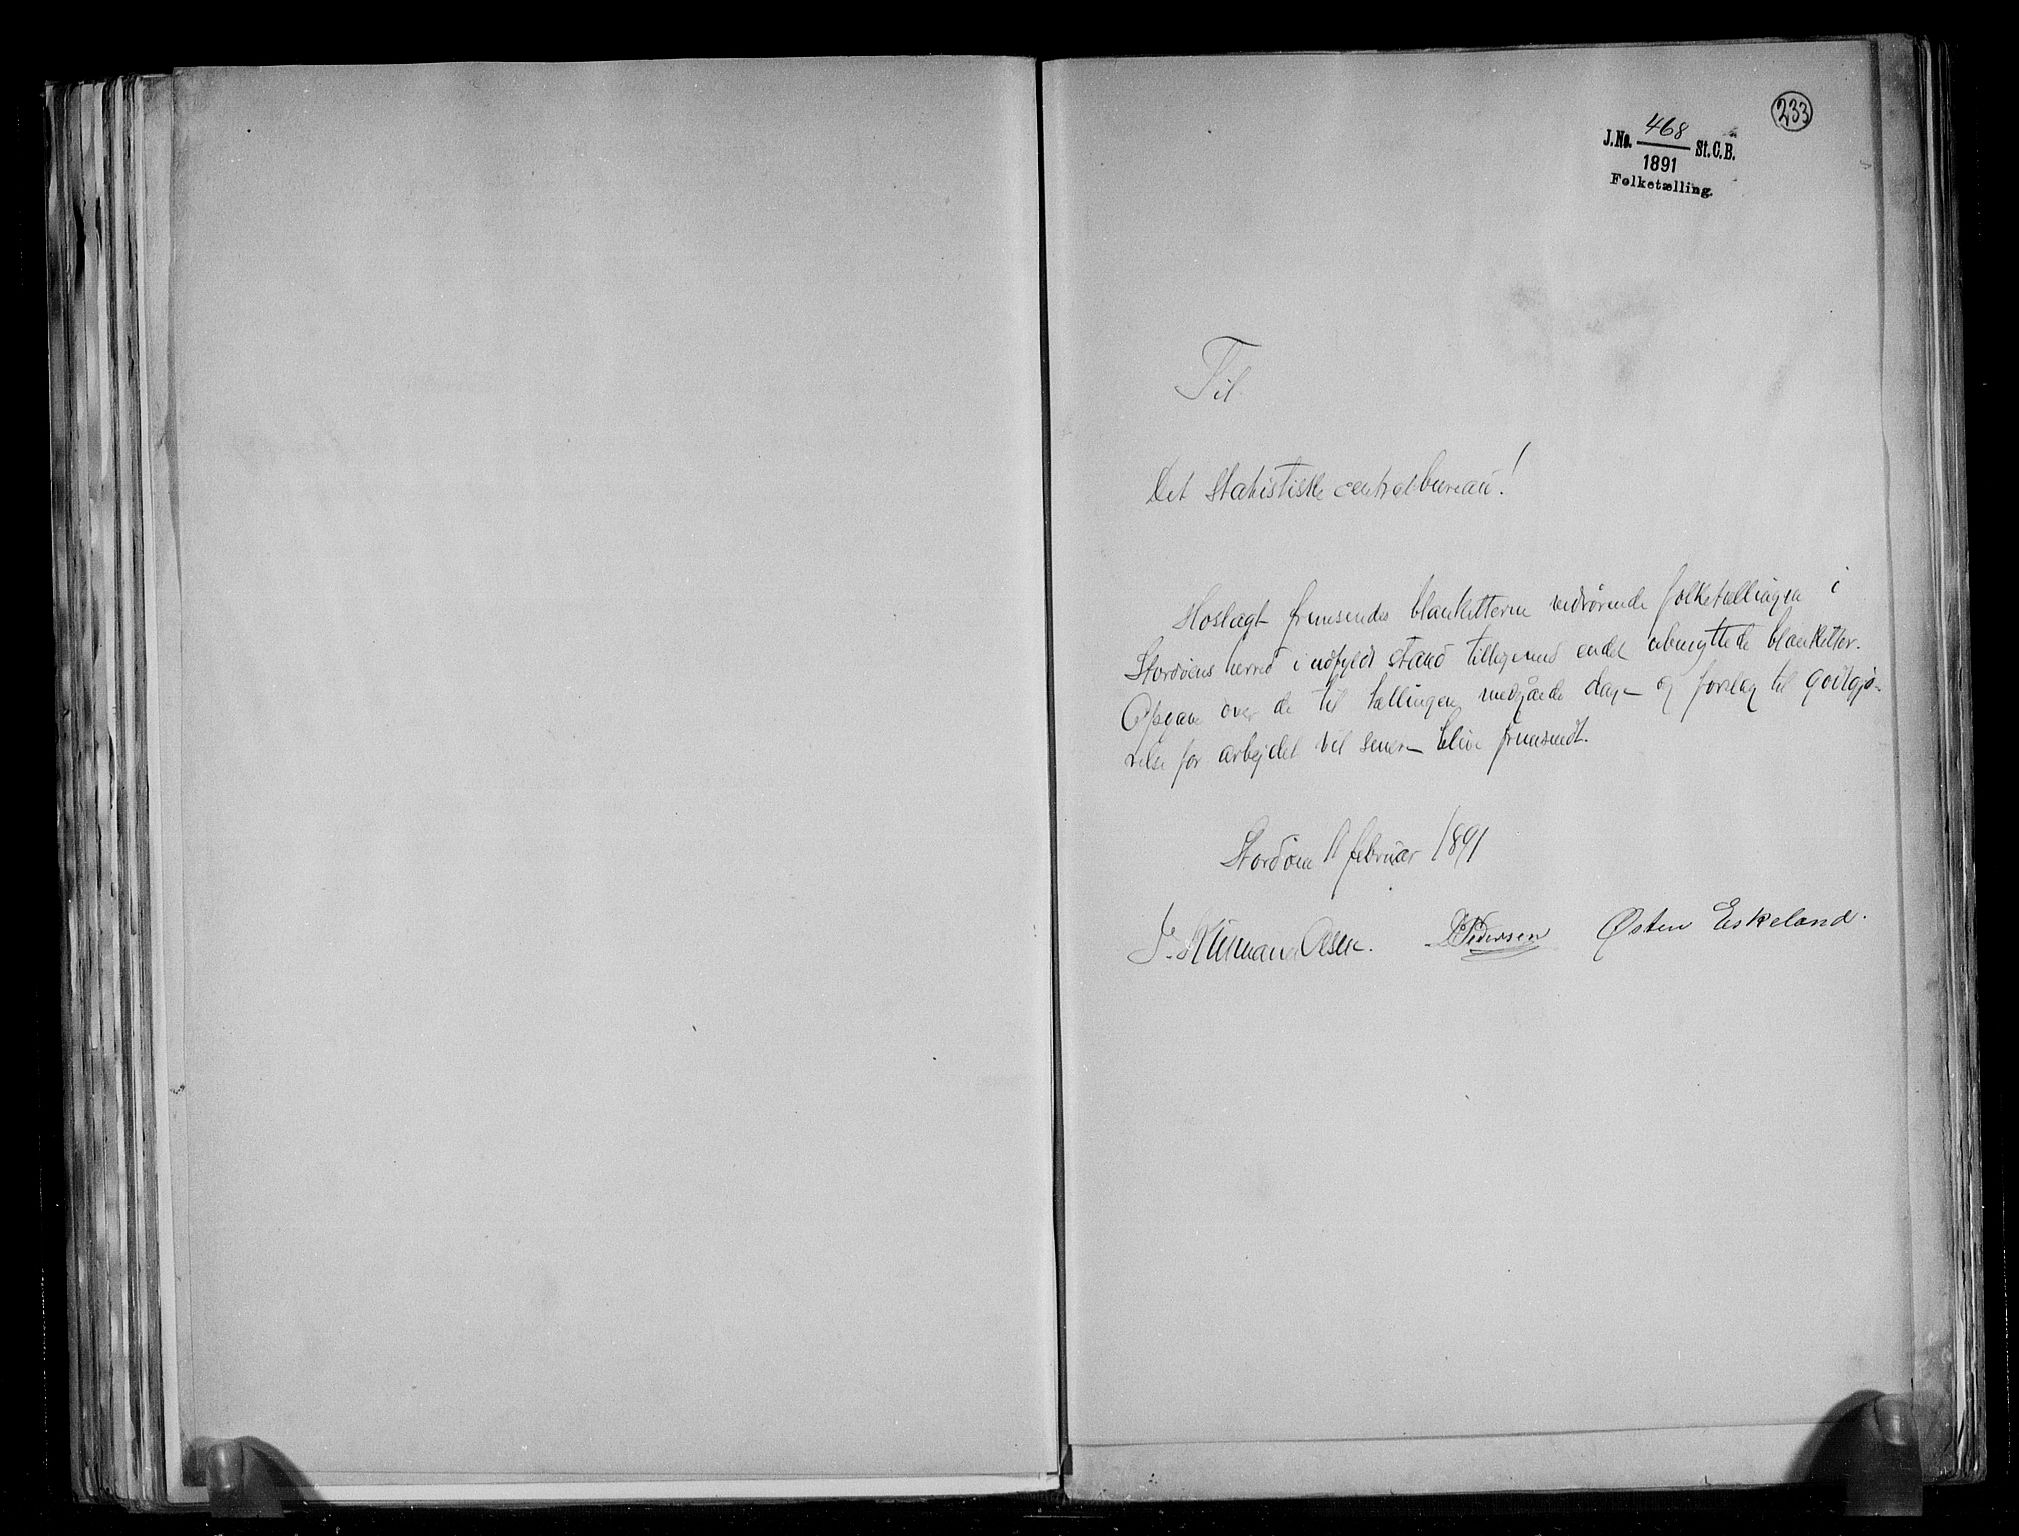 233
J.No. 468 St.C.B.
1891
Folketælling.
Til
Det statistiske centralbureau!
Hoslagt fremsendes blanketterne vedrørende folketællingen i
Stordøens herred i udfyldt stand tilligemed endel ubenyttede blanketter.
Opgave over de til tællingen medgåede dage og forslag til godtgjø-
relse for arbejdet vil senere blive fremsendt.
Stordøen 11 februar 1891
Olsen. Pedersen Østen Eskeland.